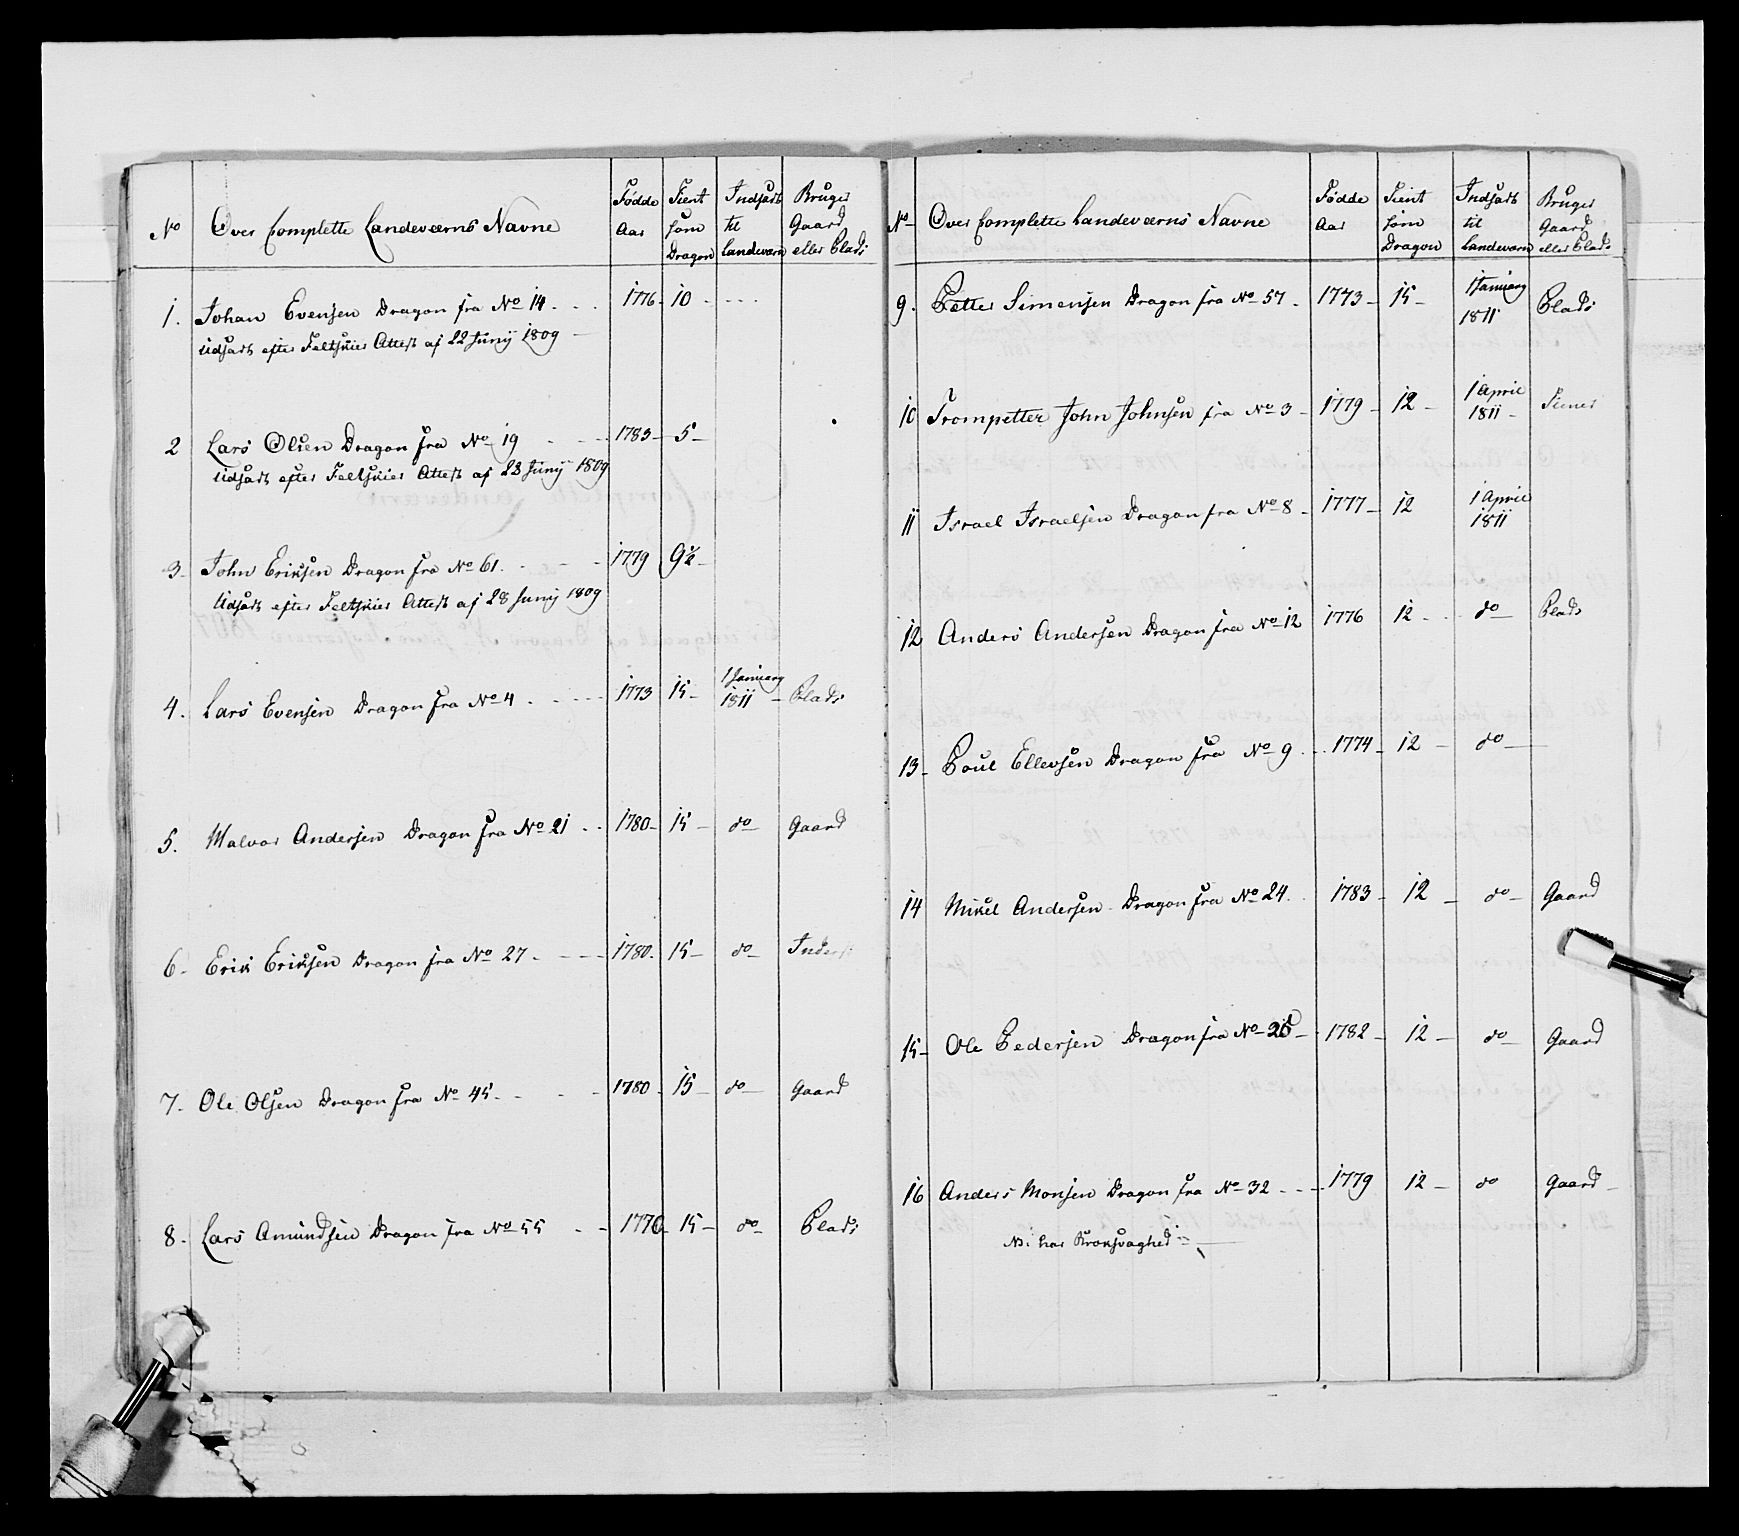 No Over Complette Landeværns Navne Fødde Aar Tient som Dragon Indsadt til Landeværn Bruger Gaard eller Plads
1. Johan Evensen Dragon fra No 14. 1776 10
Udsadt efter Feltskiær Attest af 22 Junij 1809
2 Lars Olsen Dragon fra No 19 1783 5
Udsadt efter Feltskiær Attest af 23 Junij 1809
3 John Eriksen Dragon fra No 61. 1779 9½
Udsadt efter Feltskiær Attest af 28 Junij 1809
4. Lars Evensen Dragon fra No 4 1773 15 1 Januarij 1811 Plads
5. Halvor Andersen Dragon fra No 21 1780 15 do Gaard
6 Erik Eriksen Dragon fra No 27 1780 15 do Inderst
7. Ole Olsen Dragon fra No 45 1780 15 do Gaard
8. Lars Amundsen Dragon fra No 55 1770 15 do Plads
No Over Complette Landeværns Navne Fødde Aar Tient som Dragon Indsadt til Landeværn Bruger Gaard eller Plads
9. Petter Simensen Dragon fra No 57 1773 15 1 Januarij 1811 Plads
10 Trompetter John Johnsen fra No 3 1779 12 1 April 1811 Tiener
11 Israel Israelsen Dragon fra No 8 1777 12 1 April 1811
12 Anders Andersen Dragon fra No 12 1776 12 do Plads
13 Poul Ellevsen Dragon fra No 9 1774 12 do
14 Mikel Andersen Dragon fra No 24. 1783 12 do Gaard
15 Ole Pedersen Dragon fra No 1782 12 do Gaard
16 Anders Monsen Dragon fra No 32 1779 12 do Gaard
NB: har Broksvaghed